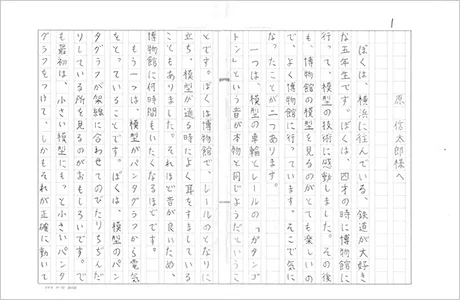 1
原　信太郎様へ
　ぼくは、横浜に住んでいる、鉄道が大好き
な五年生です。ぼくは、四才の時に博物館に
行って、模型の技術に感動しました。その後
も、博物館の模型を見るのがとても楽しいの
で、よく博物館に行っています。そこで気に
なったことが二つあります。
　一つは、模型の車輪とレールの「ガタンゴ
トン」という音が本物と同じようだというこ
とです。ぼくは博物館で、レールのとなりに
立ち、模型が通る時によく耳をすましている
こともありました。それほど音が良いため、
博物館に何時間もいたくなるほどです。
　もう一つは、模型がパンタグラフから電気
をとっていることです。ぼくは、模型のパン
タグラフが架線に合わせてのびたりちぢんだ
りしている所を見るのがおもしろいです。で
も最初は、小さい模型にもっと小さいパンタ
グラフをつけて、しかもそれが正確に動いて